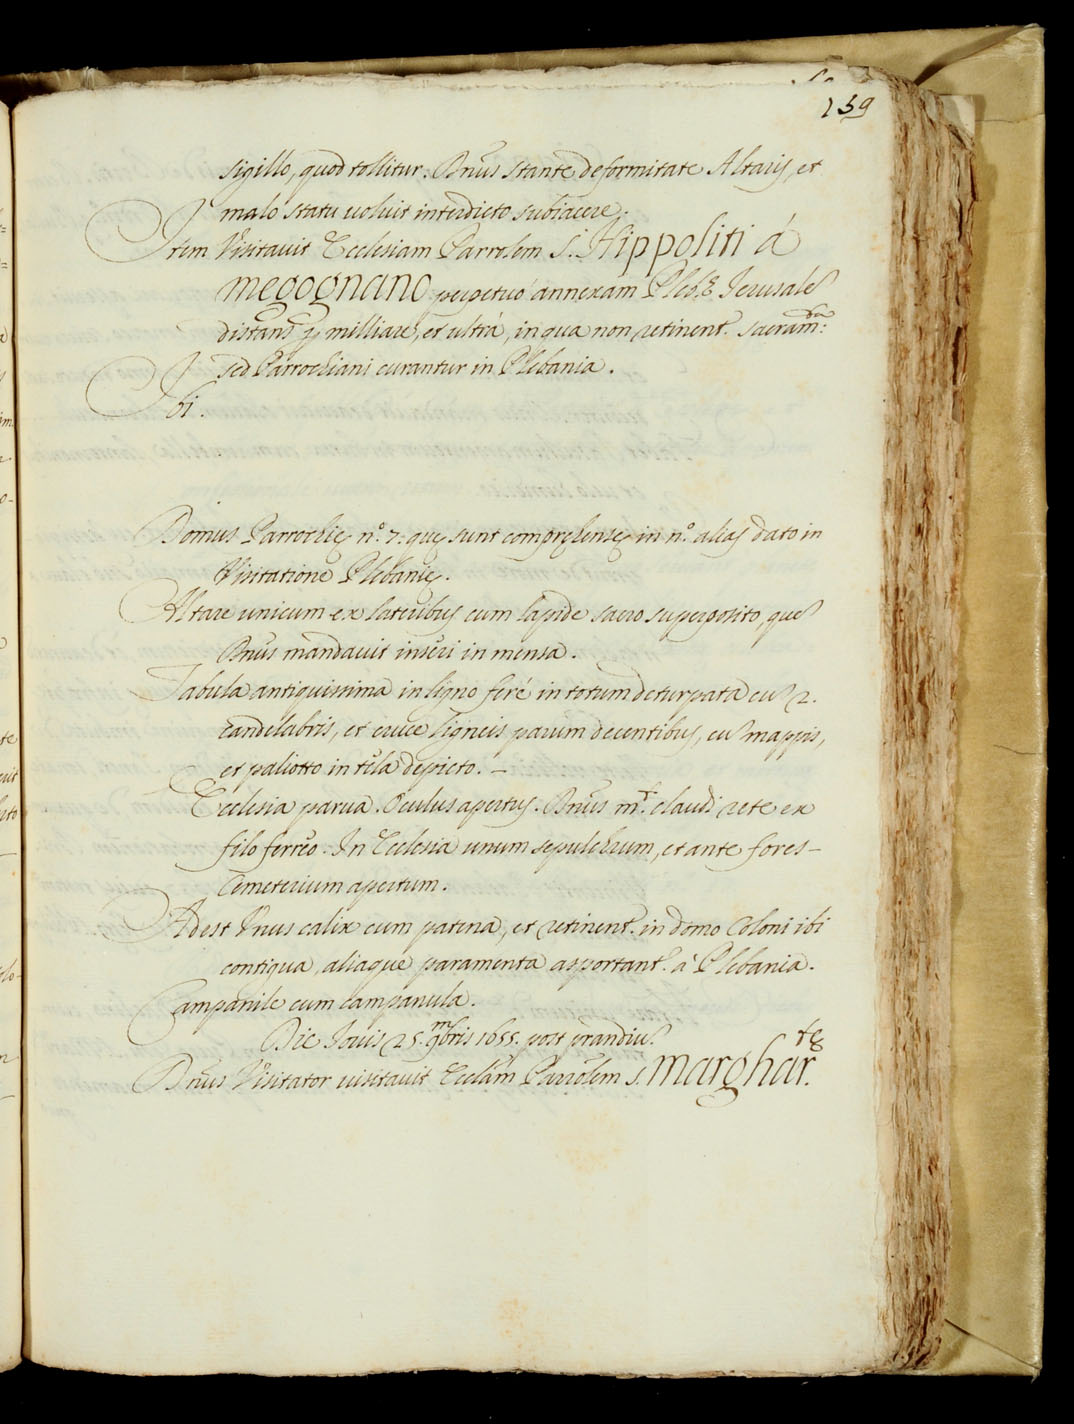 159
sigillo, quod tollitur. Dnus stante deformitate Altaris, et
malo statu voluit interdicto subiacere.
Item Visitavit Ecclesiam Parrolem S. Hippoliti à
megognano perpetuò annexam Pleb. Ierusale
distans p milliare, et ultrà, in qua non retinent. sacram:
sed Parrochiani curantur in Plebania.
Ibi.
Domus Parrochię n.º 7. quę sunt comprehensę in n.º alias dato in
Visitatione Plebanię.
Altare unicum ex lateribus cum lapide sacro superposito, que
Dnus mandavit inseri in mensa.
Tabula antiquissima in ligno ferè in totum deturpata cu 2.
candelabris, et cruce ligneis parum decentibus, cu mappis,
et paliotto in tela depicto. –
Ecclesia parva. Oculus apertus. Dnus mt. claudi rete ex
filo ferreo. In Ecclesia unum sepulchrum, et ante fores –
Cemeterium apertum.
Adest Unus calix cum patena, et retinent. in domo Coloni ibi
contigua, aliaque paramenta asportant. à Plebania.
Campanile cum campanula.
Die Iovis 25. 9mbris 1655. post prandiu
Dnus Visitator visitavit Ecclam Parrolem S. marghar.tę